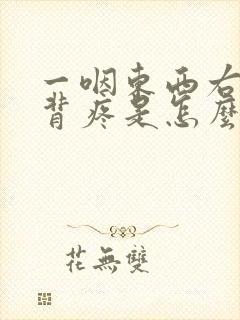 一咽东西右
背疼是怎麼
花無雙